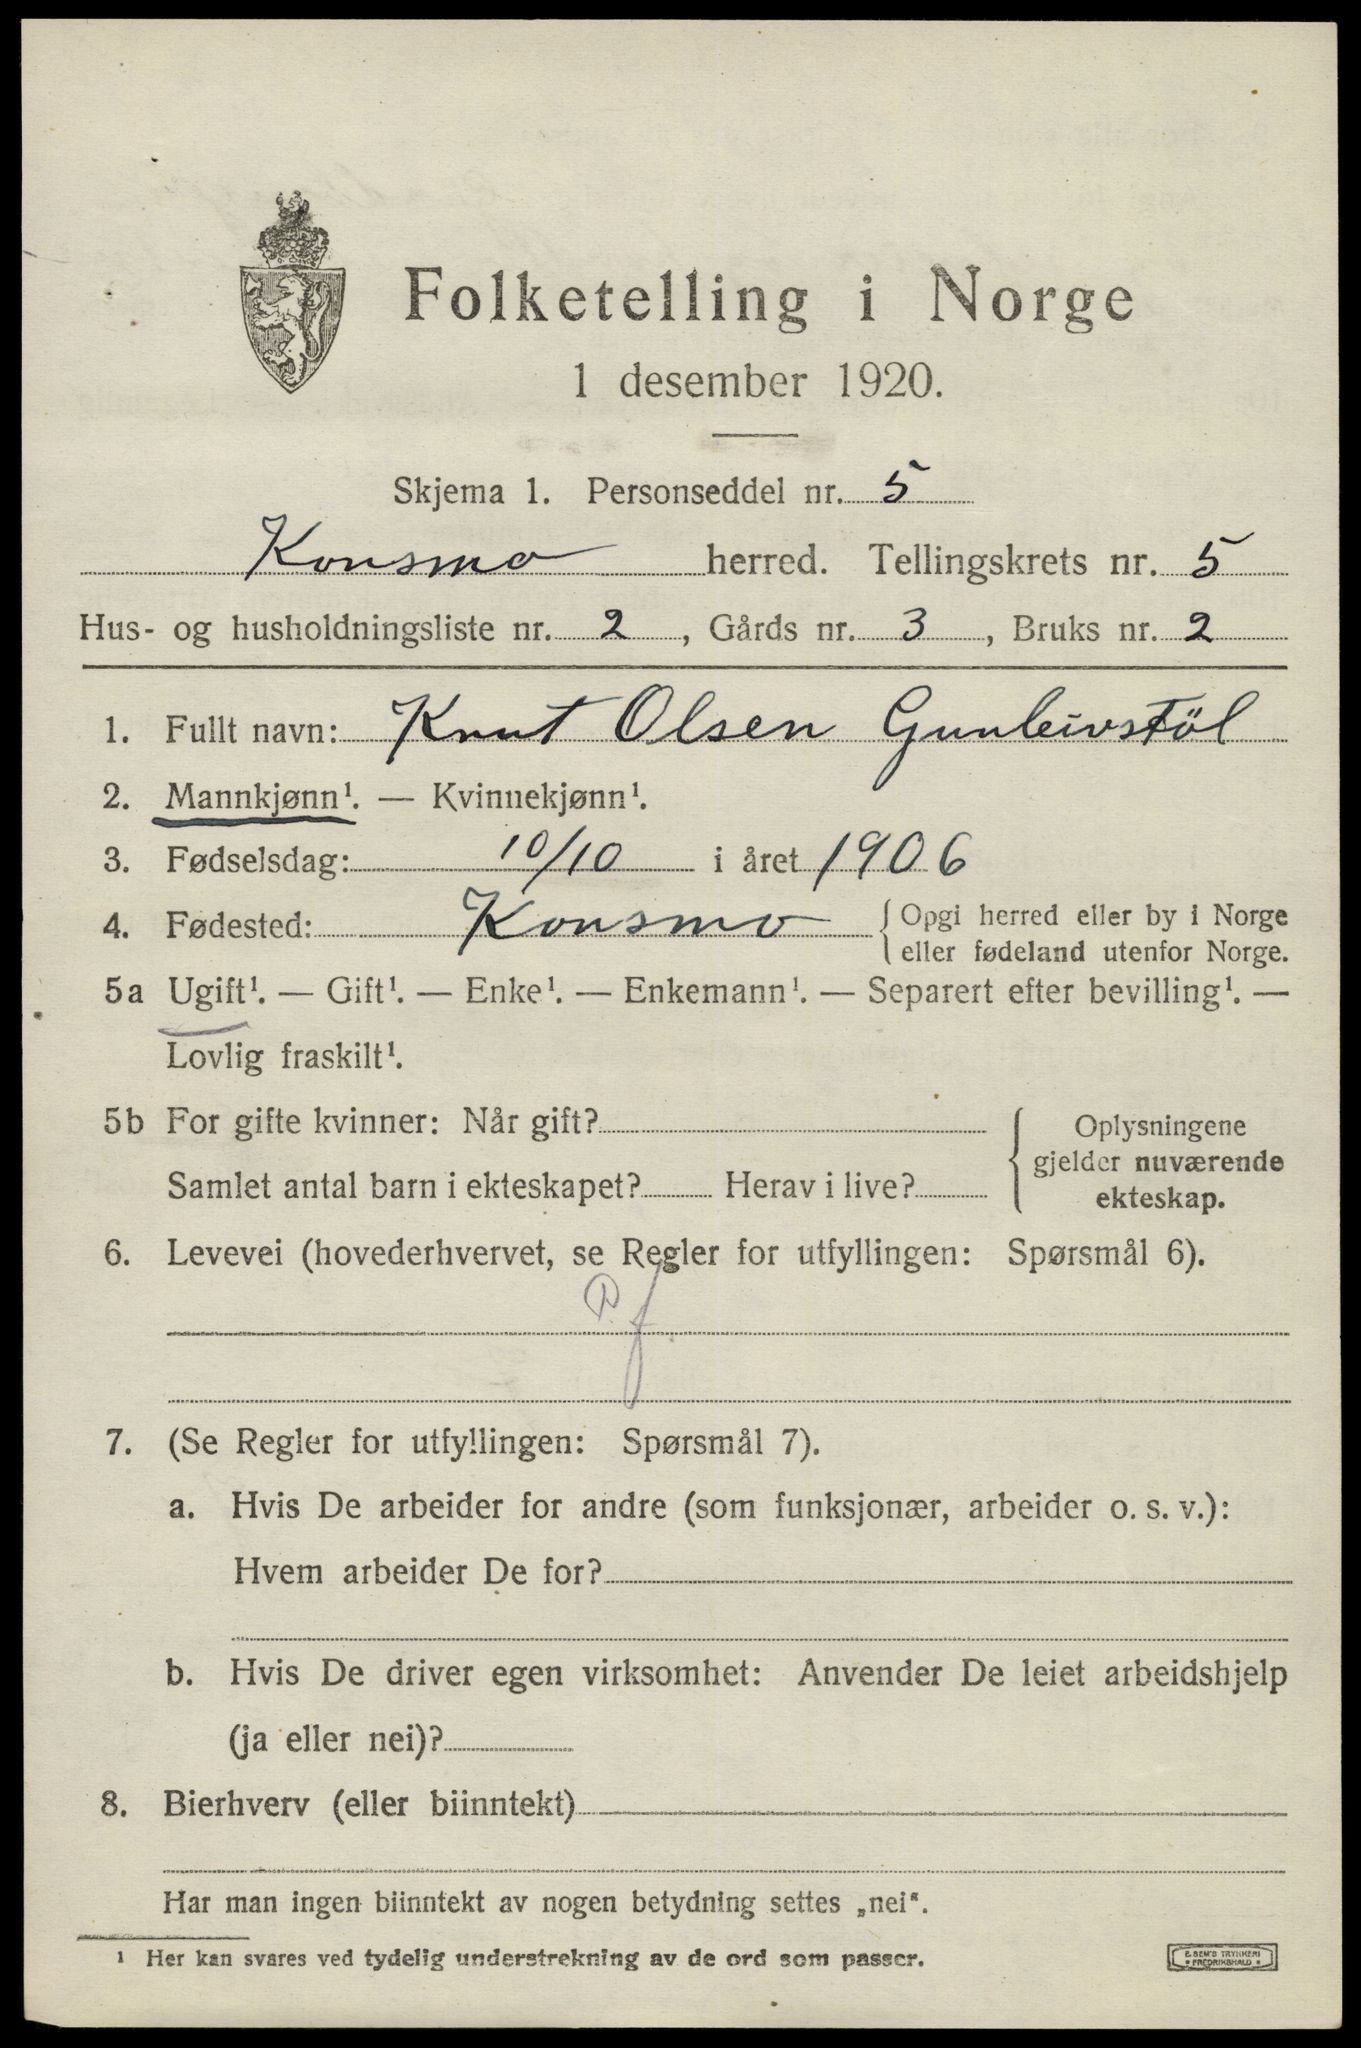 Folketelling i Norge
1 desember 1920.
Skjema 1. Personseddel nr. 5
Konsmo herred. Tellingskrets nr. 5
Hus- og husholdningsliste nr. 2, Gårds nr. 3, Bruks nr. 2
1. Fullt navn: Knut Olsen Gunleivstöl
2. Mannkjønn¹. — Kvinnekjønn¹.
3. Fødselsdag: 10/10 i året 1906
4. Fødested: Konsmo { Opgi herred eller by i Norge
eller fødeland utenfor Norge.
5a Ugift¹. — Gift¹. — Enke¹. — Enkemann¹. — Separert efter bevilling¹. —
Lovlig fraskilt¹.
5b For gifte kvinner: Når gift?
Samlet antal barn i ekteskapet? Herav i live?
{ Oplysningene
gjelder nuværende
ekteskap.
6. Levevei (hovederhvervet, se Regler for utfyllingen: Spørsmål 6).
P. f
7. (Se Regler for utfyllingen: Spørsmål 7).
a. Hvis De arbeider for andre (som funksjonær, arbeider o. s. v.):
Hvem arbeider De for?
b. Hvis De driver egen virksomhet: Anvender De leiet arbeidshjelp
(ja eller nei)?
8. Bierhverv (eller biinntekt)
Har man ingen biinntekt av nogen betydning settes „nei“.
¹ Her kan svares ved tydelig understrekning av de ord som passer.
E. SEM'S TRYKKERI
FREDRIKSHALD